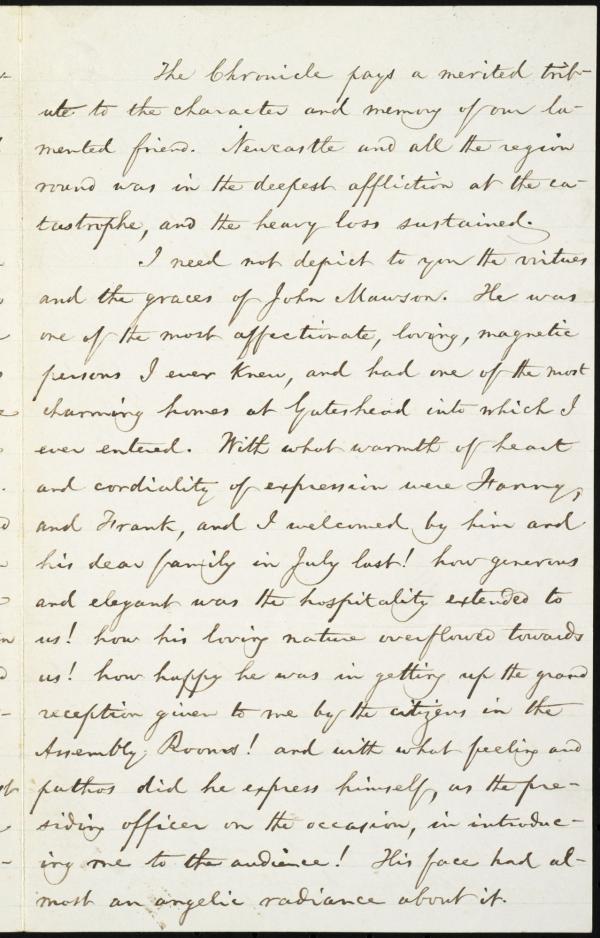 The Chronicle pays a merited trib-
ute to the character and memory of our la-
mented friend. Newcastle and all the region
round was in the deepest affliction at the ca-
tastrophe, and the heavy loss sustained.
I need not depict to you the virtues
and the graces of John Mawson. He was
one of the most affectionate, loving, magnetic
persons I ever knew, and had one of the most
charming homes at Gateshead into which I
ever entered. With what warmth of heart
and cordiality of expression were Fanny,
and Frank, and I welcomed by him and
his dear family in July last! how generous
and elegant was the hospitality extended to
us! how his loving nature overflowed towards
us! how happy he was in getting up the grand
reception given to me by the citizens in the
Assembly Rooms! and with what feeling and
pathos did he express himself, as the pre-
siding officer on the occasion, in introduc-
ing me to the audience! His face had al-
most an angelic radiance about it.